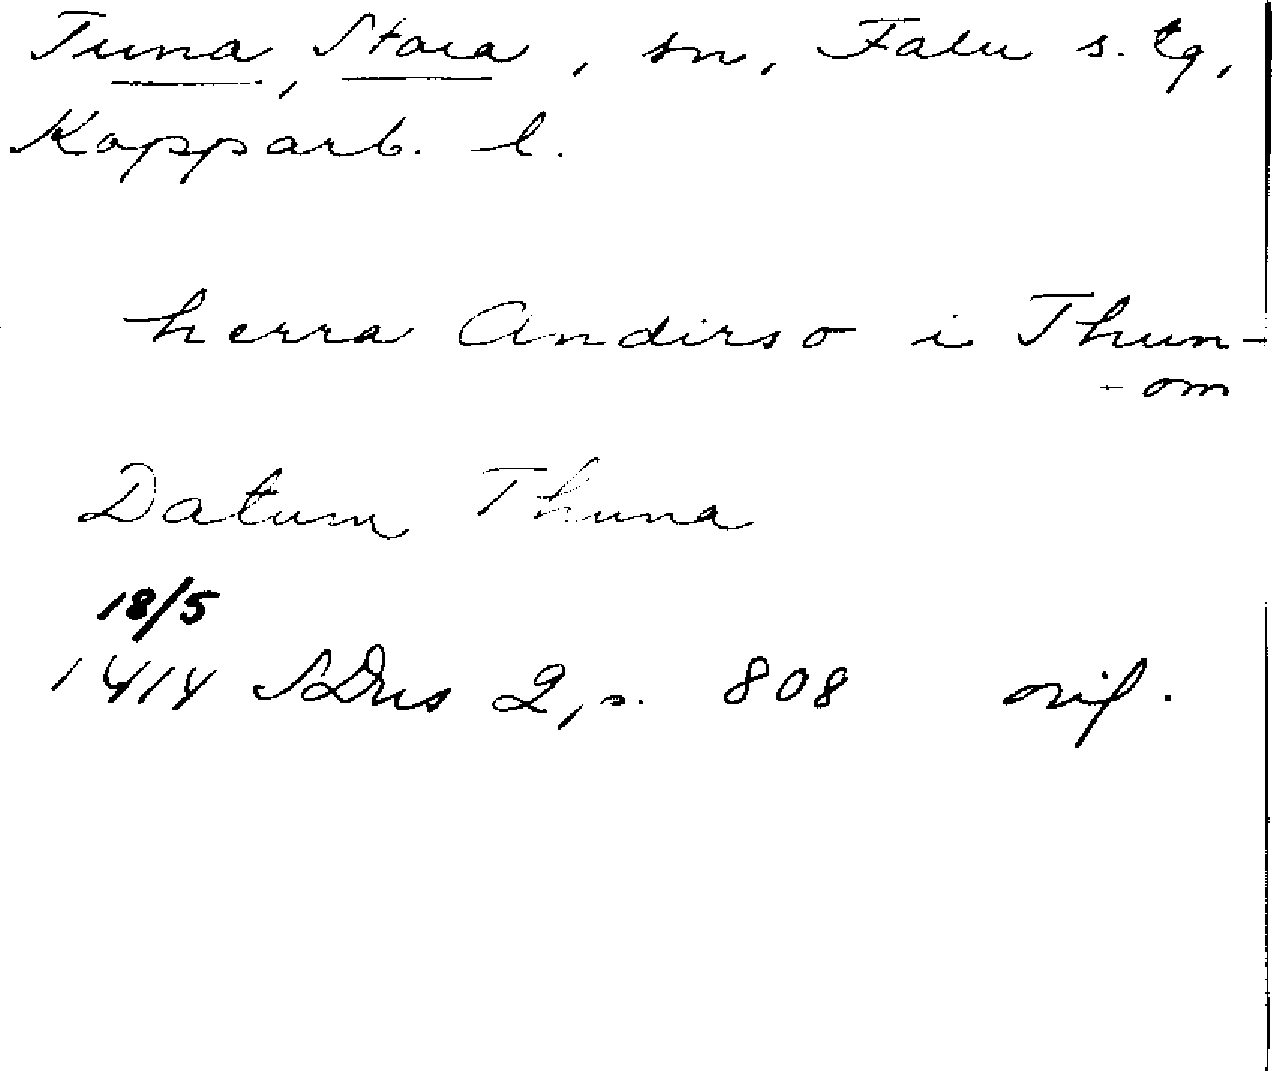 Tuna, Stora, sn, Falu s. tg,
Kopparb. l.
herra Andirso i Thun-
- om
Datum Thuna
18/5
1414 SDns 2, s. 808 orig.